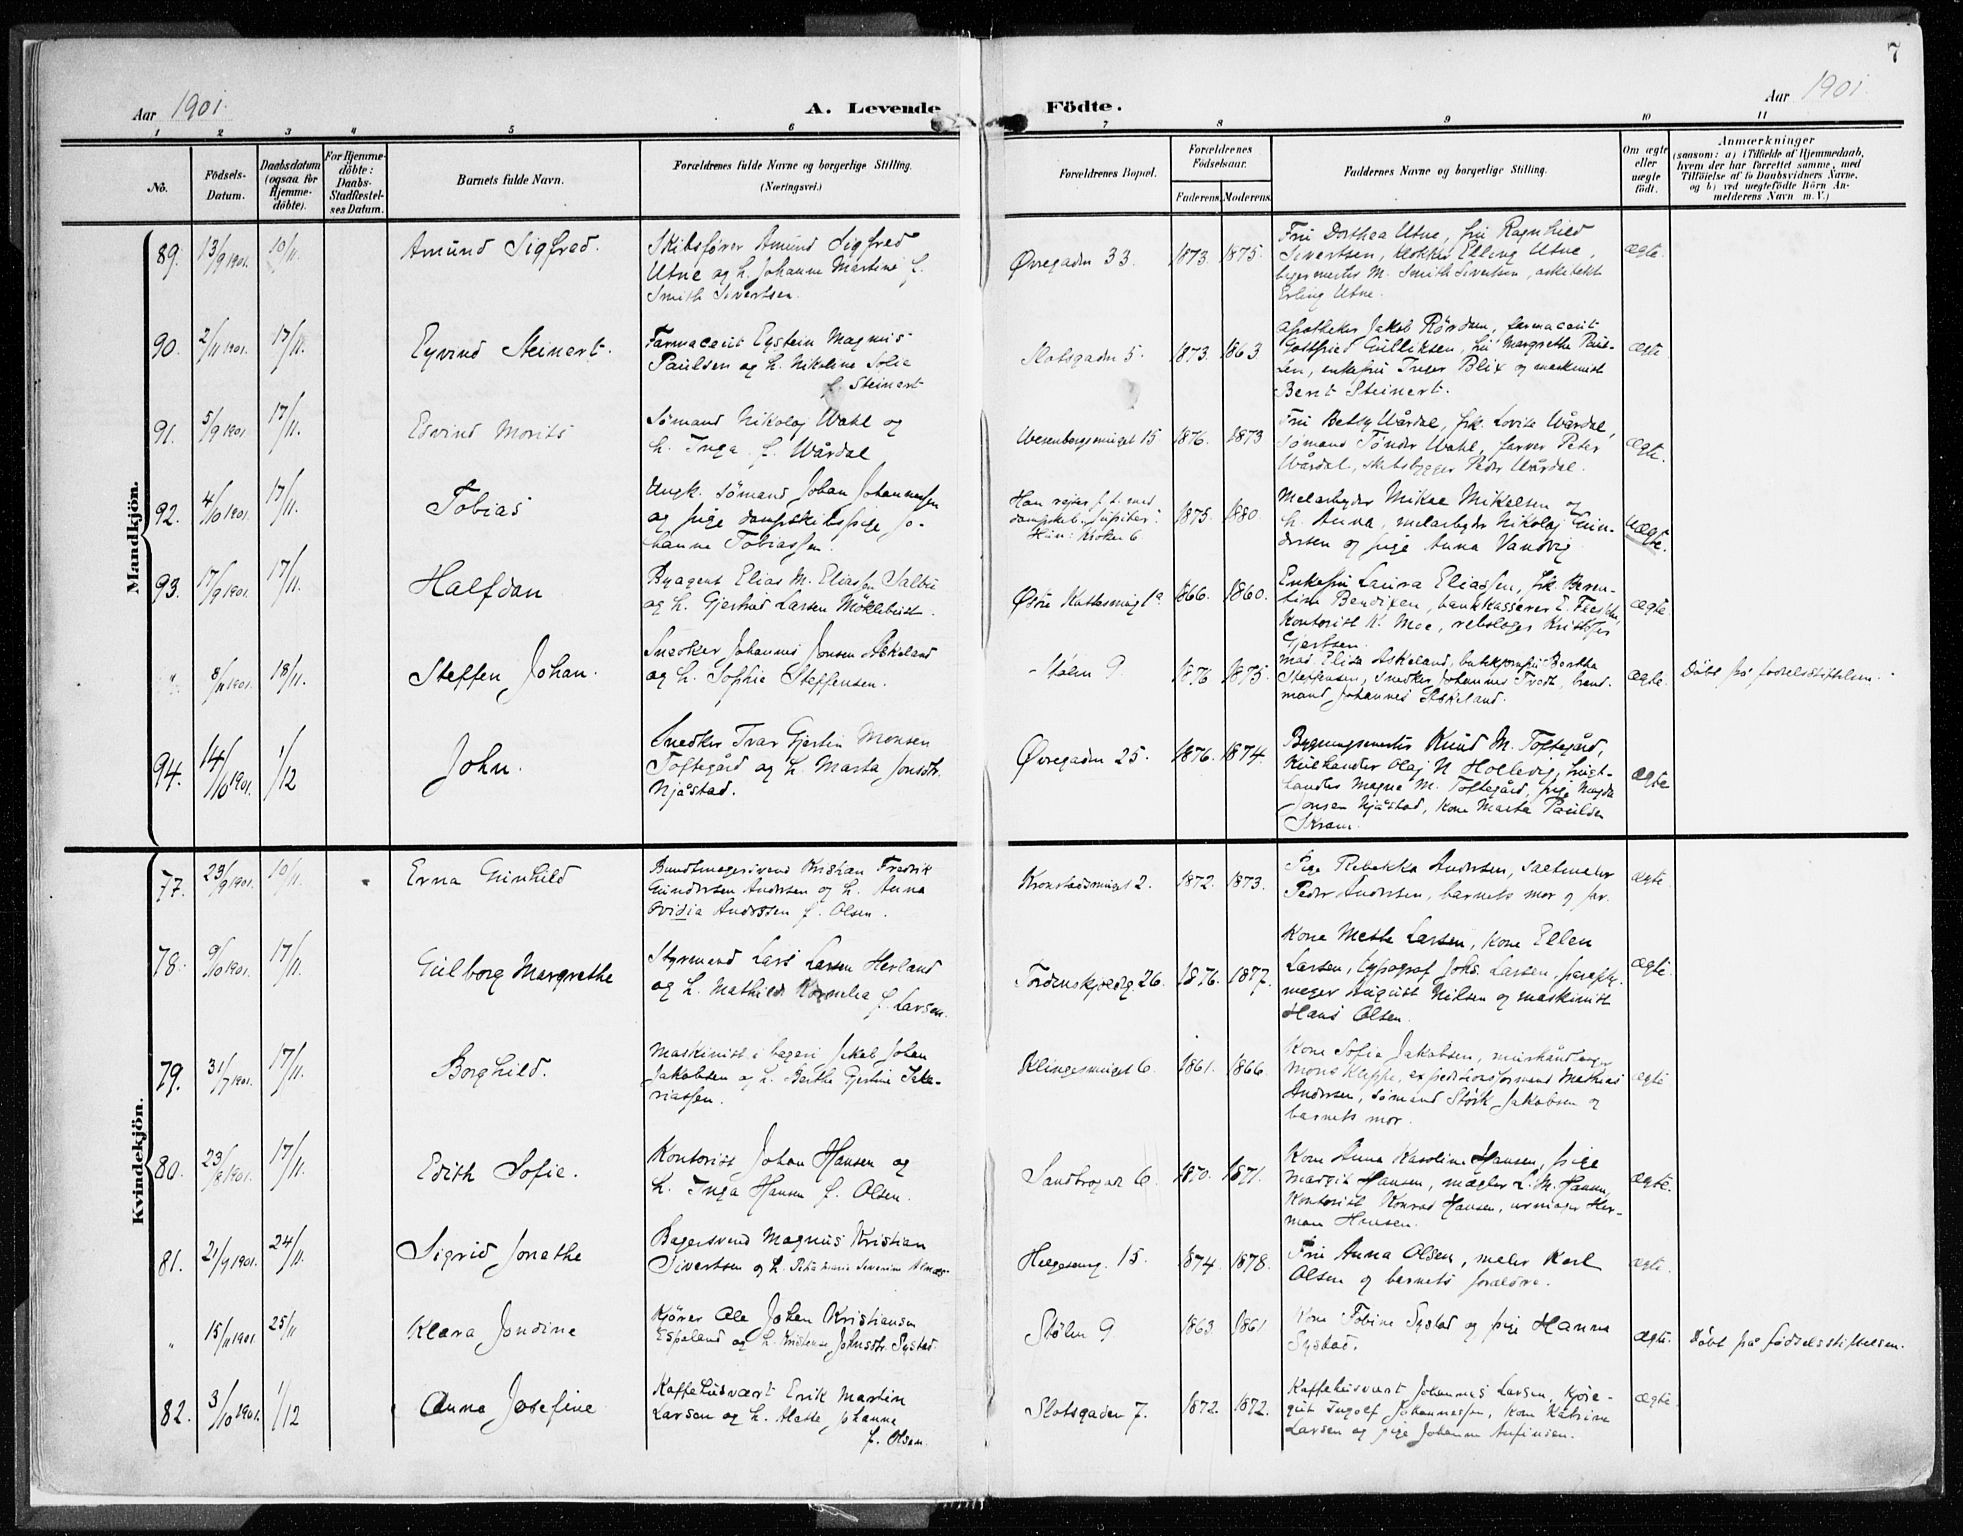 7
Aar 1901.
A. Levende Födte.
Aar 1901.
1 2 3 4 5 6 7 8 9 10 11
No.
Födsels-Datum.
Daabsdatum (ogsaa for Hjemme-döbte).
For Hjemme-döbte: Daabs-Stadfæstel-ses Datum.
Barnets fulde Navn.
Forældrenes fulde Navne og borgerlige Stilling.
(Næringsvei.)
Forældrenes Bopæl.
Forældrenes Födselsaar.
Faderens. Moderens.
Faddernes Navne og borgerlige Stilling.
Om ægte eller uægte födt.
Anmærkninger
(saasom: a) i Tilfælde af Hjemmedaab,
hvem der har forrettet samme, med
Tilföielse af to Daabsvidners Navne,
og b) ved uægtefödte Börn An-
melderens Navn m. V.)
Mandkjön.
89. 13/9 1901. 10/11. Amund Sigfred.
Skibsfører Amund Sigfred
Utne og h. Johanne Martine f.
Smith Sivertsen.
Øvregaden 33. 1873. 1875.
Fru Dorthea Utne, fru Ragnhild
Sivertsen, klokker Elling Utne,
M. Smith Sivertsen, arkitekt
Erling Utne.
ægte.
90. 2/11 1901. 17/11. Eyvind Steinert.
Farmaceut Eystein Magnus
Paulsen og h. Nikoline Sofie
f. Steinert
Slotsgaden 5. 1873. 1863
Apotheker Jakob Rørdam, farmaceut
Gottfried Gulliksen, fru Margrethe Paul-
sen, enkefru Inger Blix og maskinist
Bernt Steinert.
ægte.
91. 5/9 1901. 17/11. Edvind Morits
Sømand Nikolaj Wahl og
h. Inga f. Wårdal
Wesenbergsmuget 15 1876. 1873
Fru Betsy Wårdal, frk. Lovita Wårdal,
sømand Tønder Wahl, farver Peter
Wårdal, skibsbygger Peder Wårdal.
ægte.
92. 4/10 1901. 17/11. Tobias
Ungk. sømand Johan Johannessen
og pige dampskibspige Jo-
hanne Tobiassen.
Han rejser f. t. med
dampskib "Jupiter".
Hun: Kroken 6
1875. 1880.
Mikal Mikelsen og
h. Anna, Nikolaj Gun-
dersen og pige Anna Vandvig.
Uægte.
93. 17/9 1901. 17/11. Halfdan
Byagent Elias M. Eliassen Salbu
og h. Gjertrud Larsen Möklebust.
Øvre Kattesmug 1a 1866. 1860.
Enkefru Laura Eliassen, frk. Beren-
tine Bendixen, bankkasserer E.
kontorist K. Moe, rebslager Kristofer
Gjertsen.
ægte
" 8/11 1901. 18/11. Steffen Johan.
Snedker Johannes Jonsen Askeland
og h. Sophie Steffensen.
Stølen 9. 1876 1875.
Mad. Elisa Askeland, Bertha
Steffensen, snedker Johannes Tvedt, brand-
mand Johannes Askeland.
ægte.
Döbt på fødselsstiftelsen.
94. 14/10 1901. 1/12 John.
Snedker Ivar Gjertin Monsen
Toftegård og h. Marta Jonsdtr.
Njåstad.
Øvregaden 25. 1876. 1874.
Bygningsmester Knud M. Toftegård,
Olaj N Hollevig,
Magne M. Toftegård, pige Magda
Jonsen Njåstad, kone Marta Paulsen
Skram.
ægte
Kvindekjön.
77. 23/9 1901. 10/11. Erna Gunhild
Bundtmagersvend Kristian Fredrik
Gundersen Andersen og h. Anna
Ovidia Anderssen f. Olsen.
Kronstadsmuget 2. 1872. 1873.
Pige Rebekka Andersen,
Peder Andersen, barnets mor og far.
ægte
78. 9/10 1901. 17/11. Gulborg Margrethe
Styrmand Lars Larsen Herland
og h. Mathilde Kornelia f. Larsen.
Tordenskjoldsg 26. 1876. 1877.
Kone Mette Larsen, kone Ellen
Larsen, typograf Johs. Larsen,
August Nilsen og maskinist
Hans Olsen.
ægte
79. 31/7 1901. 17/11. Borghild.
Maskinist i bageri Jakob Johan
Jakobsen og h. Berthe Gjertine Saka-
riassen.
Klingesmuget 6. 1861. 1866.
Kone Sofie Jakobsen, murhåndlanger
Mons Kleppe, expeditionsformand Mathias
Andersen, sømand Størk Jakobsen og
barnets mor.
ægte
80. 23/8 1901. 17/11. Edith Sofie.
Kontorist Johan Hansen og
h. Inga Hansen f. Olsen.
Sandbrogad 6 1870. 1871.
Kone Anna Karoline Hansen, pige
Margit Hansen, mægler L. M. Hansen,
kontorist Konrad Hansen, urmager Her-
man Hansen.
ægte.
81. 21/9 1901. 24/11. Sigrid Jonathe
Bagersvend Magnus Kristian
Sivertsen og h. Petra Marie Severine Alnæs
Helgesensg. 15. 1874. 1878.
Fru Anna Olsen, maler Karl
Olsen og barnets forældre.
ægte.
" 15/11 1901. 25/11 Klara Jondine
Kjører Ole Johan Kristiansen
Espeland og h. Kristense Johnsdtr. Systad.
Stølen 9. 1863. 1861
Kone Tobine Systad og pige Hanna
Systad.
ægte.
Döbt på fødselsstiftelsen.
82. 3/10 1901. 1/12 Anna Josefine
Kaffehusvært Erik Martin
Larsen og h. Alette Johanne
f. Olsen.
Slotsgaden 7. 1872. 1872.
Kaffehusvært Johannes Larsen,
Ingolf Johannessen, kone Katrine
Larsen og pige Johanne Anfinsen.
ægte.